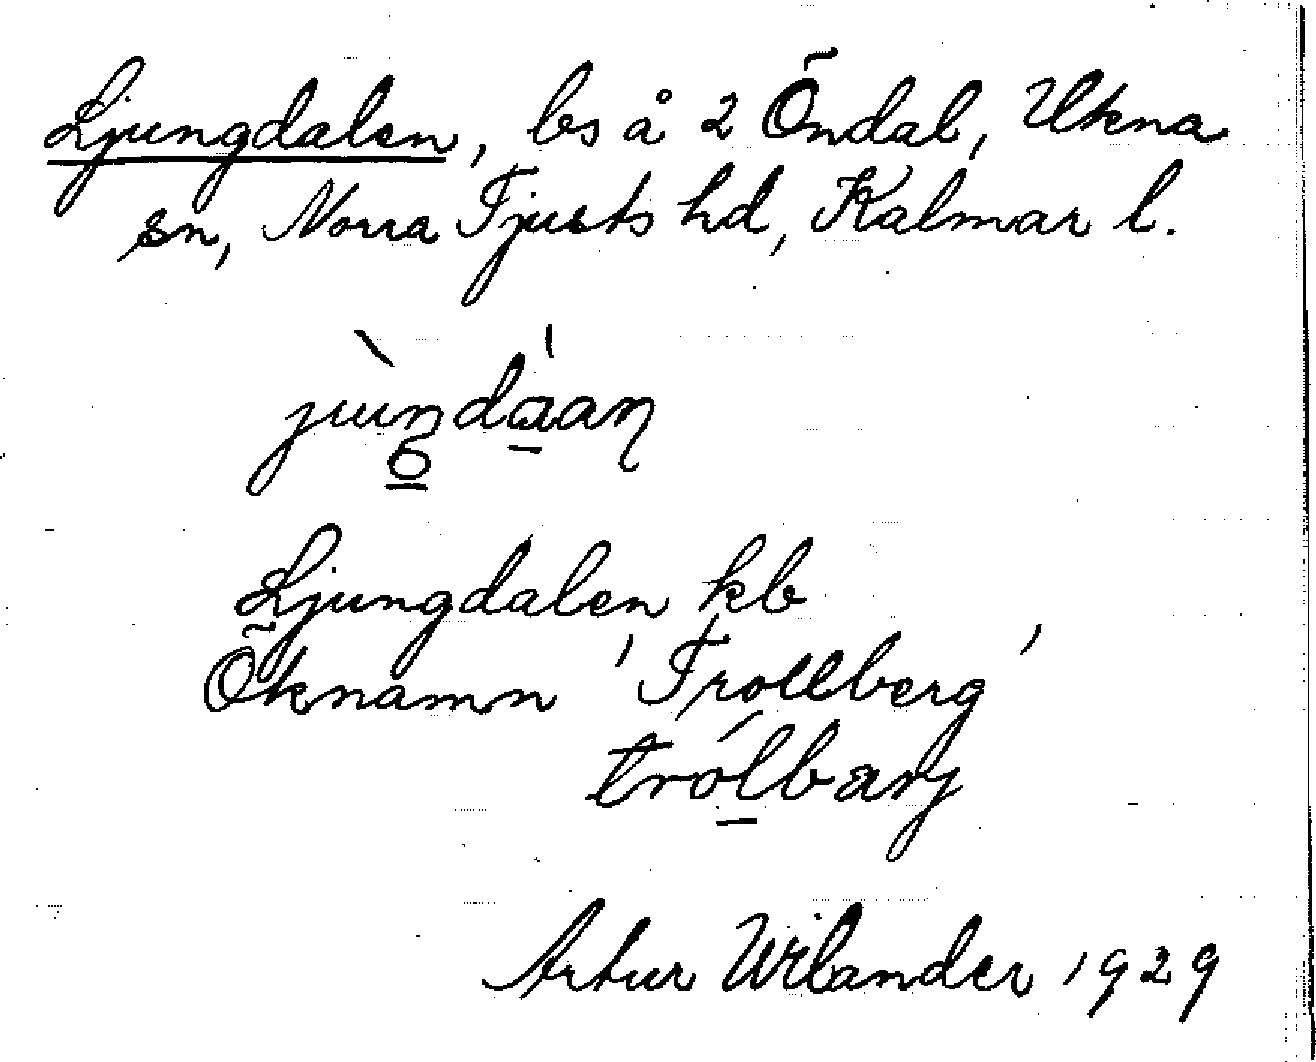 Ljungdalen, bs å 2 Öndal, Ukna
sn, Norra Tjusts hd, Kalmar l.
Ljungdalen kb
Öknamn 'Trollberg'
trólbarj
Artur Wilander 1929